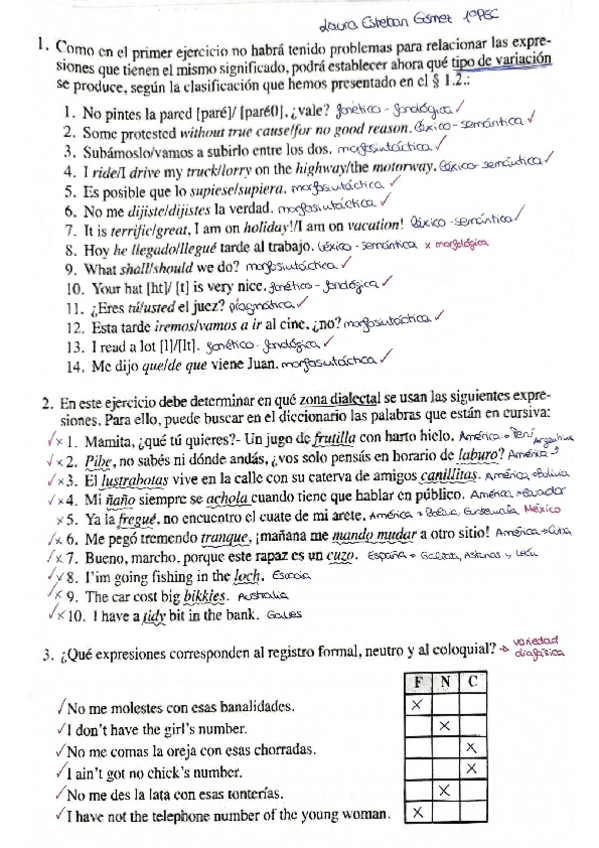 Laura Esteban Gómez 1ºPEC
1. Como en el primer ejercicio no habrá tenido problemas para relacionar las expre-
siones que tienen el mismo significado, podrá establecer ahora qué tipo de variación
se produce, según la clasificación que hemos presentado en el § 1.2.:
1. No pintes la pared [paré]/ [paréθ], ¿vale? fonético - fonológica ✓
2. Some protested without true cause/for no good reason. léxico - semántica ✓
3. Subámoslo/vamos a subirlo entre los dos. morfosintáctica ✓
4. I ride/I drive my truck/lorry on the highway/the motorway. léxico - semántica ✓
5. Es posible que lo supiese/supiera. morfosintáctica ✓
6. No me dijiste/dijistes la verdad. morfosintáctica ✓
7. It is terrific/great, I am on holiday!/I am on vacation! léxico - semántica ✓
8. Hoy he llegado/llegué tarde al trabajo. léxico - semántica x morfológica
9. What shall/should we do? morfosintáctica ✓
10. Your hat [ht]/ [t] is very nice. fonético - fonológica ✓
11. ¿Eres tú/usted el juez? pragmática ✓
12. Esta tarde iremos/vamos a ir al cine, ¿no? morfosintáctica ✓
13. I read a lot [l]/[lt]. fonético - fonológica ✓
14. Me dijo que/de que viene Juan. morfosintáctica ✓
2. En este ejercicio debe determinar en qué zona dialectal se usan las siguientes expre-
siones. Para ello, puede buscar en el diccionario las palabras que están en cursiva:
✓× 1. Mamita, ¿qué tú quieres?- Un jugo de frutilla con harto hielo. América → Perú Argentina
✓× 2. Pibe, no sabés ni dónde andás, ¿vos solo pensás en horario de laburo? América
✓× 3. El lustrabotas vive en la calle con su caterva de amigos canillitas. América → Bolivia
✓× 4. Mi ñaño siempre se achola cuando tiene que hablar en público. América → Ecuador
× 5. Ya la fregué, no encuentro el cuate de mi arete. América → Bolivia, Guatemala México
✓× 6. Me pegó tremendo tranque, ¡mañana me mando mudar a otro sitio! América → Cuba
✓× 7. Bueno, marcho, porque este rapaz es un cuzo. España → Galicia, Asturias y León
✓× 8. I'm going fishing in the loch. Escocia
✓× 9. The car cost big bikkies. Australia
✓× 10. I have a tidy bit in the bank. Gales
3. ¿Qué expresiones corresponden al registro formal, neutro y al coloquial? → variedad
diafásica
F N C
✓ No me molestes con esas banalidades. X
✓ I don't have the girl's number. X
✓ No me comas la oreja con esas chorradas. X
✓ I ain't got no chick's number. X
✓ No me des la lata con esas tonterías. X
✓ I have not the telephone number of the young woman. X